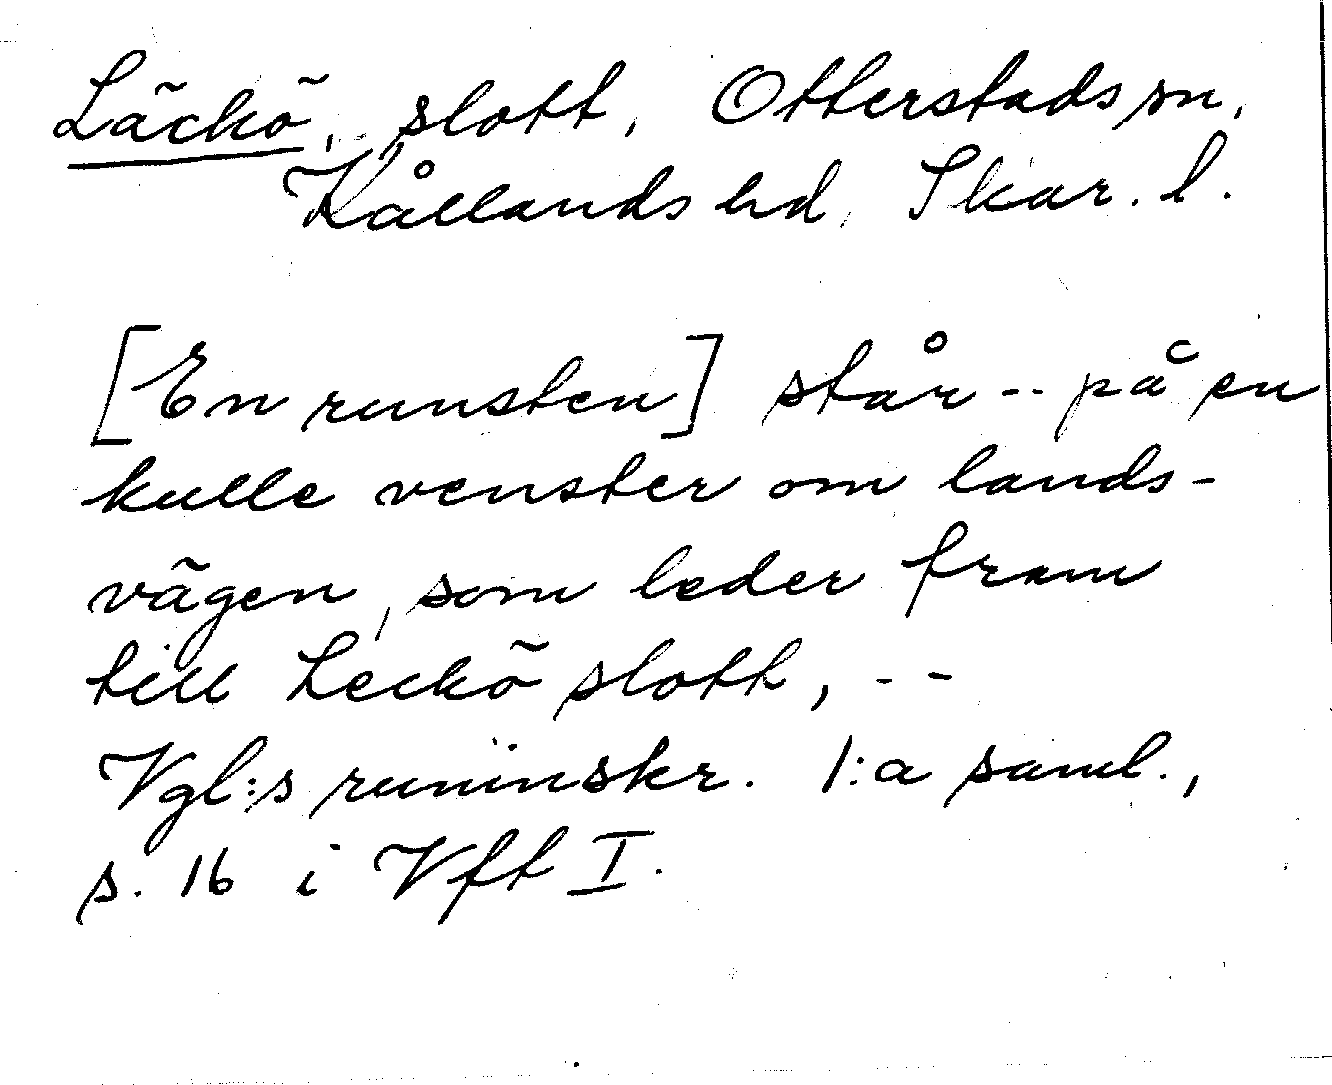 Läckö, slott, Otterstads sn,
Kållands hd, Skar. l.
[En runsten] står -- på en
kulle venster om lands-
vägen, som leder fram
till Leckö slott, --
Vgl:s runinskr. 1:a saml.,
s. 16 i Vft I.